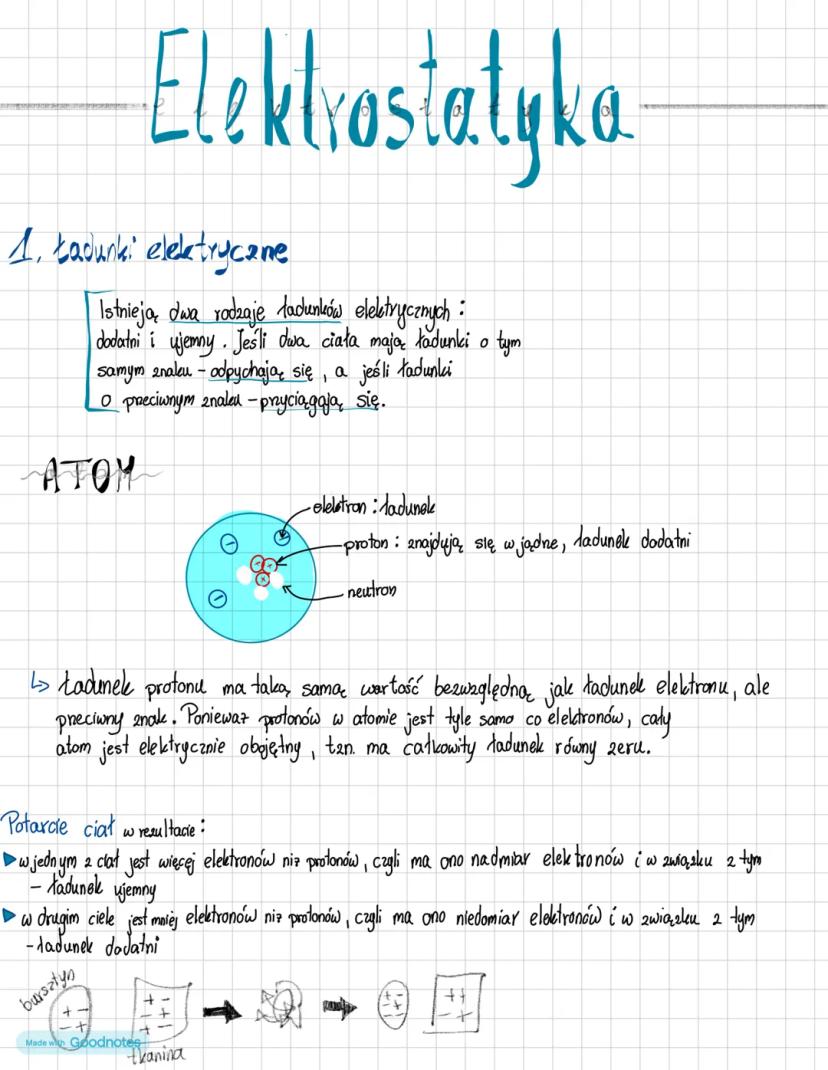 Elektrostatyka
1. Ładunki elektryczne
Istnieją dwa rodzaje ładunków elektrycznych:
dodatni i ujemny. Jeśli dwa ciała mają ładunki o tym
samym znaku - odpychają się, a jeśli ładunki
o przeciwnym znaku - przyciągają się.
ATOM
elektron : ładunek
proton : znajdują się w jądrze, ładunek dodatni
neutron
↳ Ładunek protonu ma taką samą wartość bezwzględną jak ładunek elektronu, ale
przeciwny znak. Ponieważ protonów w atomie jest tyle samo co elektronów, cały
atom jest elektrycznie obojętny, tzn. ma całkowity ładunek równy zeru.
Potarcie ciał w rezultacie:
▶ w jednym z ciał jest więcej elektronów niż protonów, czyli ma ono nadmiar elektronów i w związku z tym
- ładunek ujemny
▶ w drugim ciele jest mniej elektronów niż protonów, czyli ma ono niedomiar elektronów i w związku z tym
- ładunek dodatni
bursztyn
tkanina
Made with Goodnotes